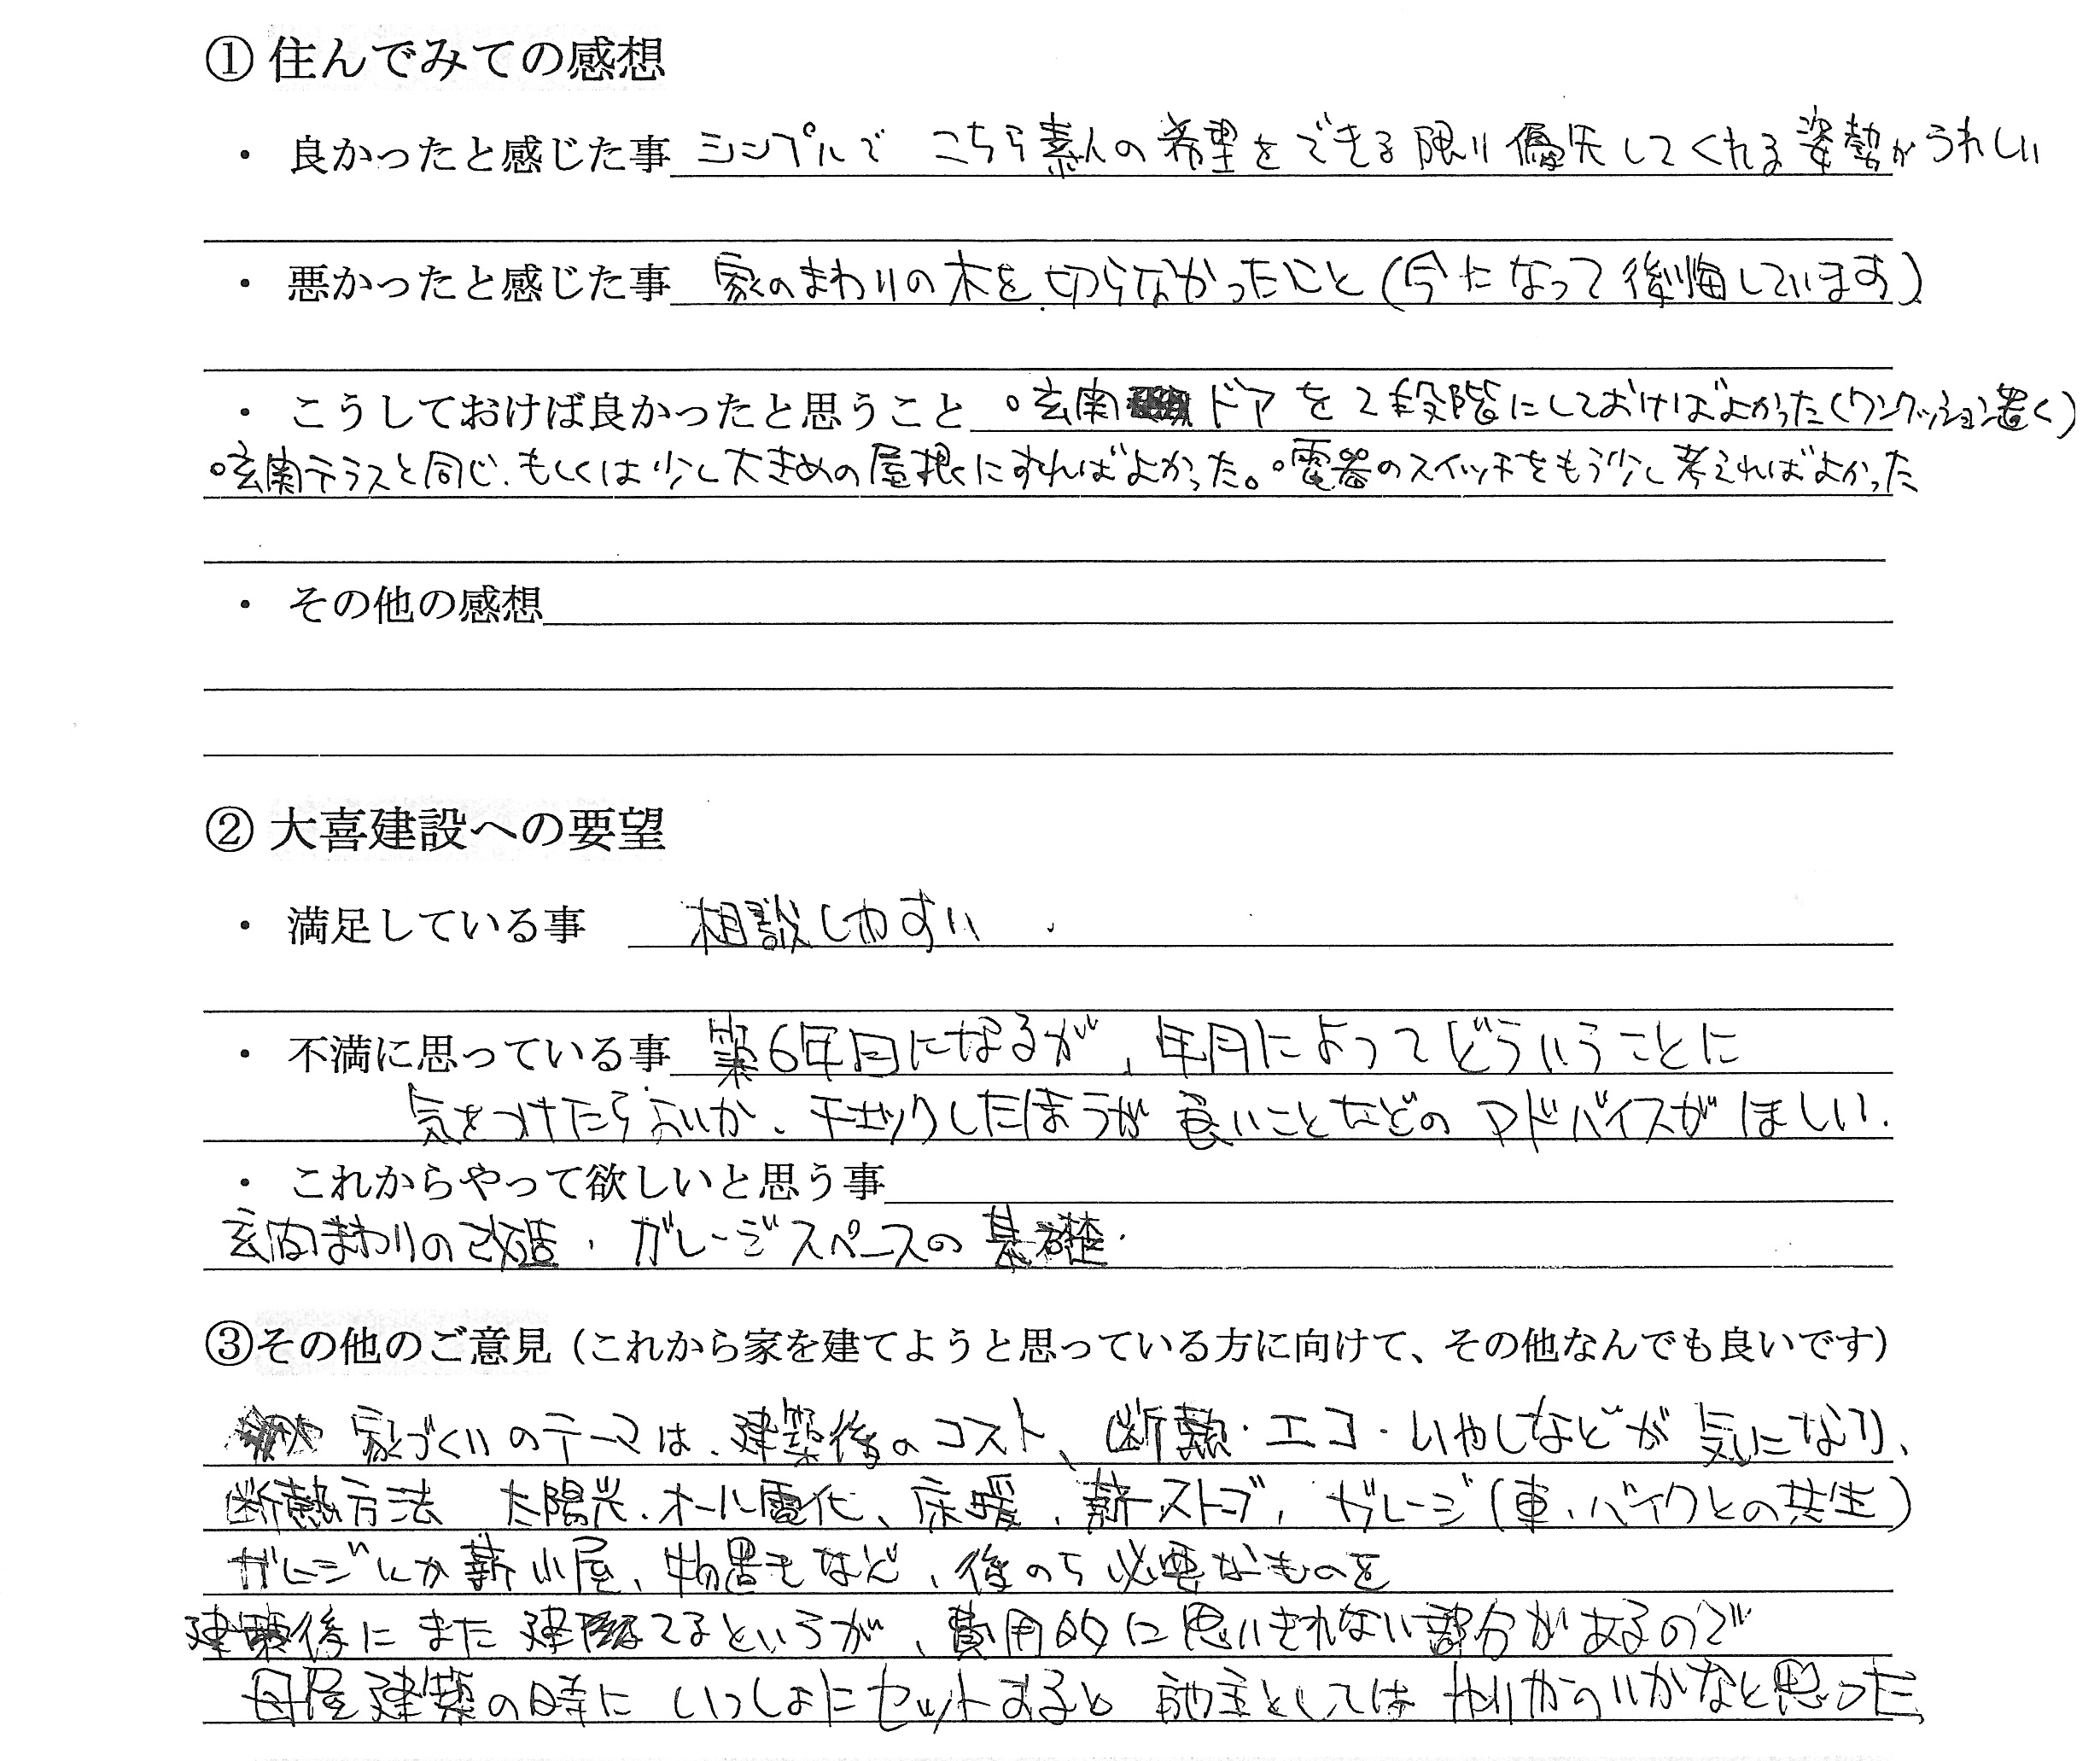 ① 住んでみての感想
・ 良かったと感じた事 シンプルで こちら素人の希望をできる限り優先してくれる姿勢がうれしい
・ 悪かったと感じた事 家のまわりの木を切らなかったこと(今になって後悔しています)
・ こうしておけば良かったと思うこと 。玄関 ドアを2段階にしておけばよかった(ワンクッション置く)
。玄関テラスと同じ、もしくは少し大きめの屋根にすればよかった。。電器のスイッチをもう少し考えればよかった
・ その他の感想
② 大喜建設への要望
・ 満足している事 相談しやすい
・ 不満に思っている事 築6年目になるが、年月によってどういうことに
気をつけたらよいか、チェックしたほうが良いことなどのアドバイスがほしい.
・ これからやって欲しいと思う事
玄関まわりの改造・ガレージスペースの基礎.
③その他のご意見(これから家を建てようと思っている方に向けて、その他なんでも良いです)
家づくりのテーマは、建築後のコスト、断熱・エコ・いやしなどが気になり、
断熱方法 太陽光、オール電化、床暖、薪ストーブ、ガレージ(車、バイクとの共生)
ガレージ 薪小屋、物置きなど、後のち必要なものを
建築後にまた建てるというが、費用的に思いきれない部分があるので
母屋建築の時にいっしょにセットすると 施主としては かなと思った